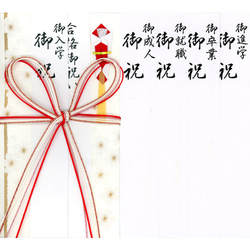 御進学
御祝
御卒業
御祝
御就職
御祝
御成人
御祝
合格御祝い
御入学
御祝